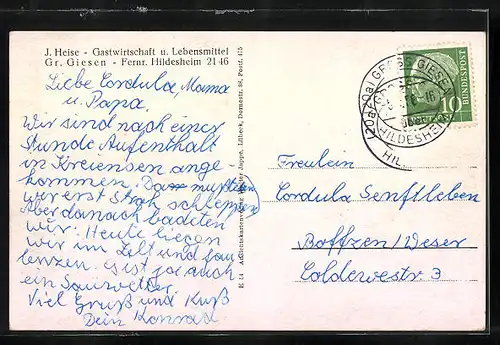 J. Heise - Gastwirtschaft u. Lebensmittel
Gr. Giesen - Fernr. Hildesheim 21 46
Liebe Cordula, Mama
u. Papa.
Wir sind nach einer
Stunde Aufenthalt
in Kreiensen ange-
kommen. Dann mußten
wir erst Stroh schleppen
Aber danach badeten
wir. Heute liegen
wir im Zelt und fau-
lenzen. es ist ja auch
ein Sauwetter.
Viel Gruß und Kuß
Dein Konrad.
K 14 Ansichtskartenverlag Jappe, Lübeck, Dornestr. 88, Postf. 475
(20a) GROSS GIESEN
über
HILDESHEIM
DEUTSCHE BUNDESPOST
10
Fräulein
Cordula Senftleben
Boffzen/Weser
Coldewestr. 3